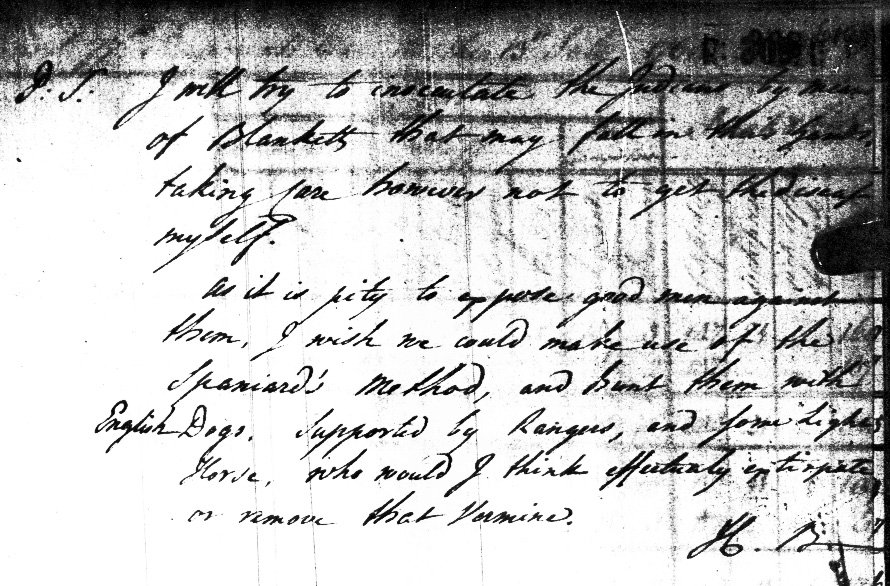 P: S: I will try to inocculate the Indians by means
of Blankets that may fall in their hands,
taking care however not to get the disease
myself.
As it is pity to oppose good men against
them, I wish we could make use of the
Spaniard's Method, and hunt them with
English Dogs. Supported by Rangers, and some Light
Horse, who would I think effectualy extirpate
or remove that Vermine.
H. B.